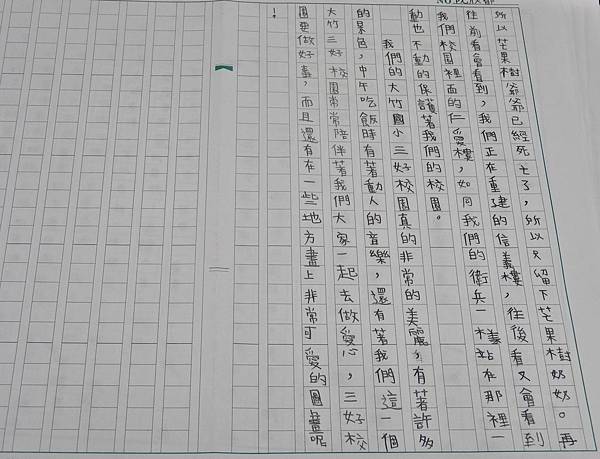 所以芒果樹爺爺已經死去了,所以只留下芒果樹奶奶。再
往前看會看到,我們正在重建的信義樓,往後看又會看到
我們校園裡面的仁愛樓,如同我們的衛兵一樣站在那裡一
動也不動的保護著我們的校園。
我們的大竹國小三好校園真的非常的美麗,有著許多
的景色,中午吃飯時有著動人的音樂,還有著我們這一個
大竹三好校園常常陪伴著我們大家一起去做愛心,三好校
園要做好事,而且還有在一些地方畫上非常可愛的圖畫呢
!。